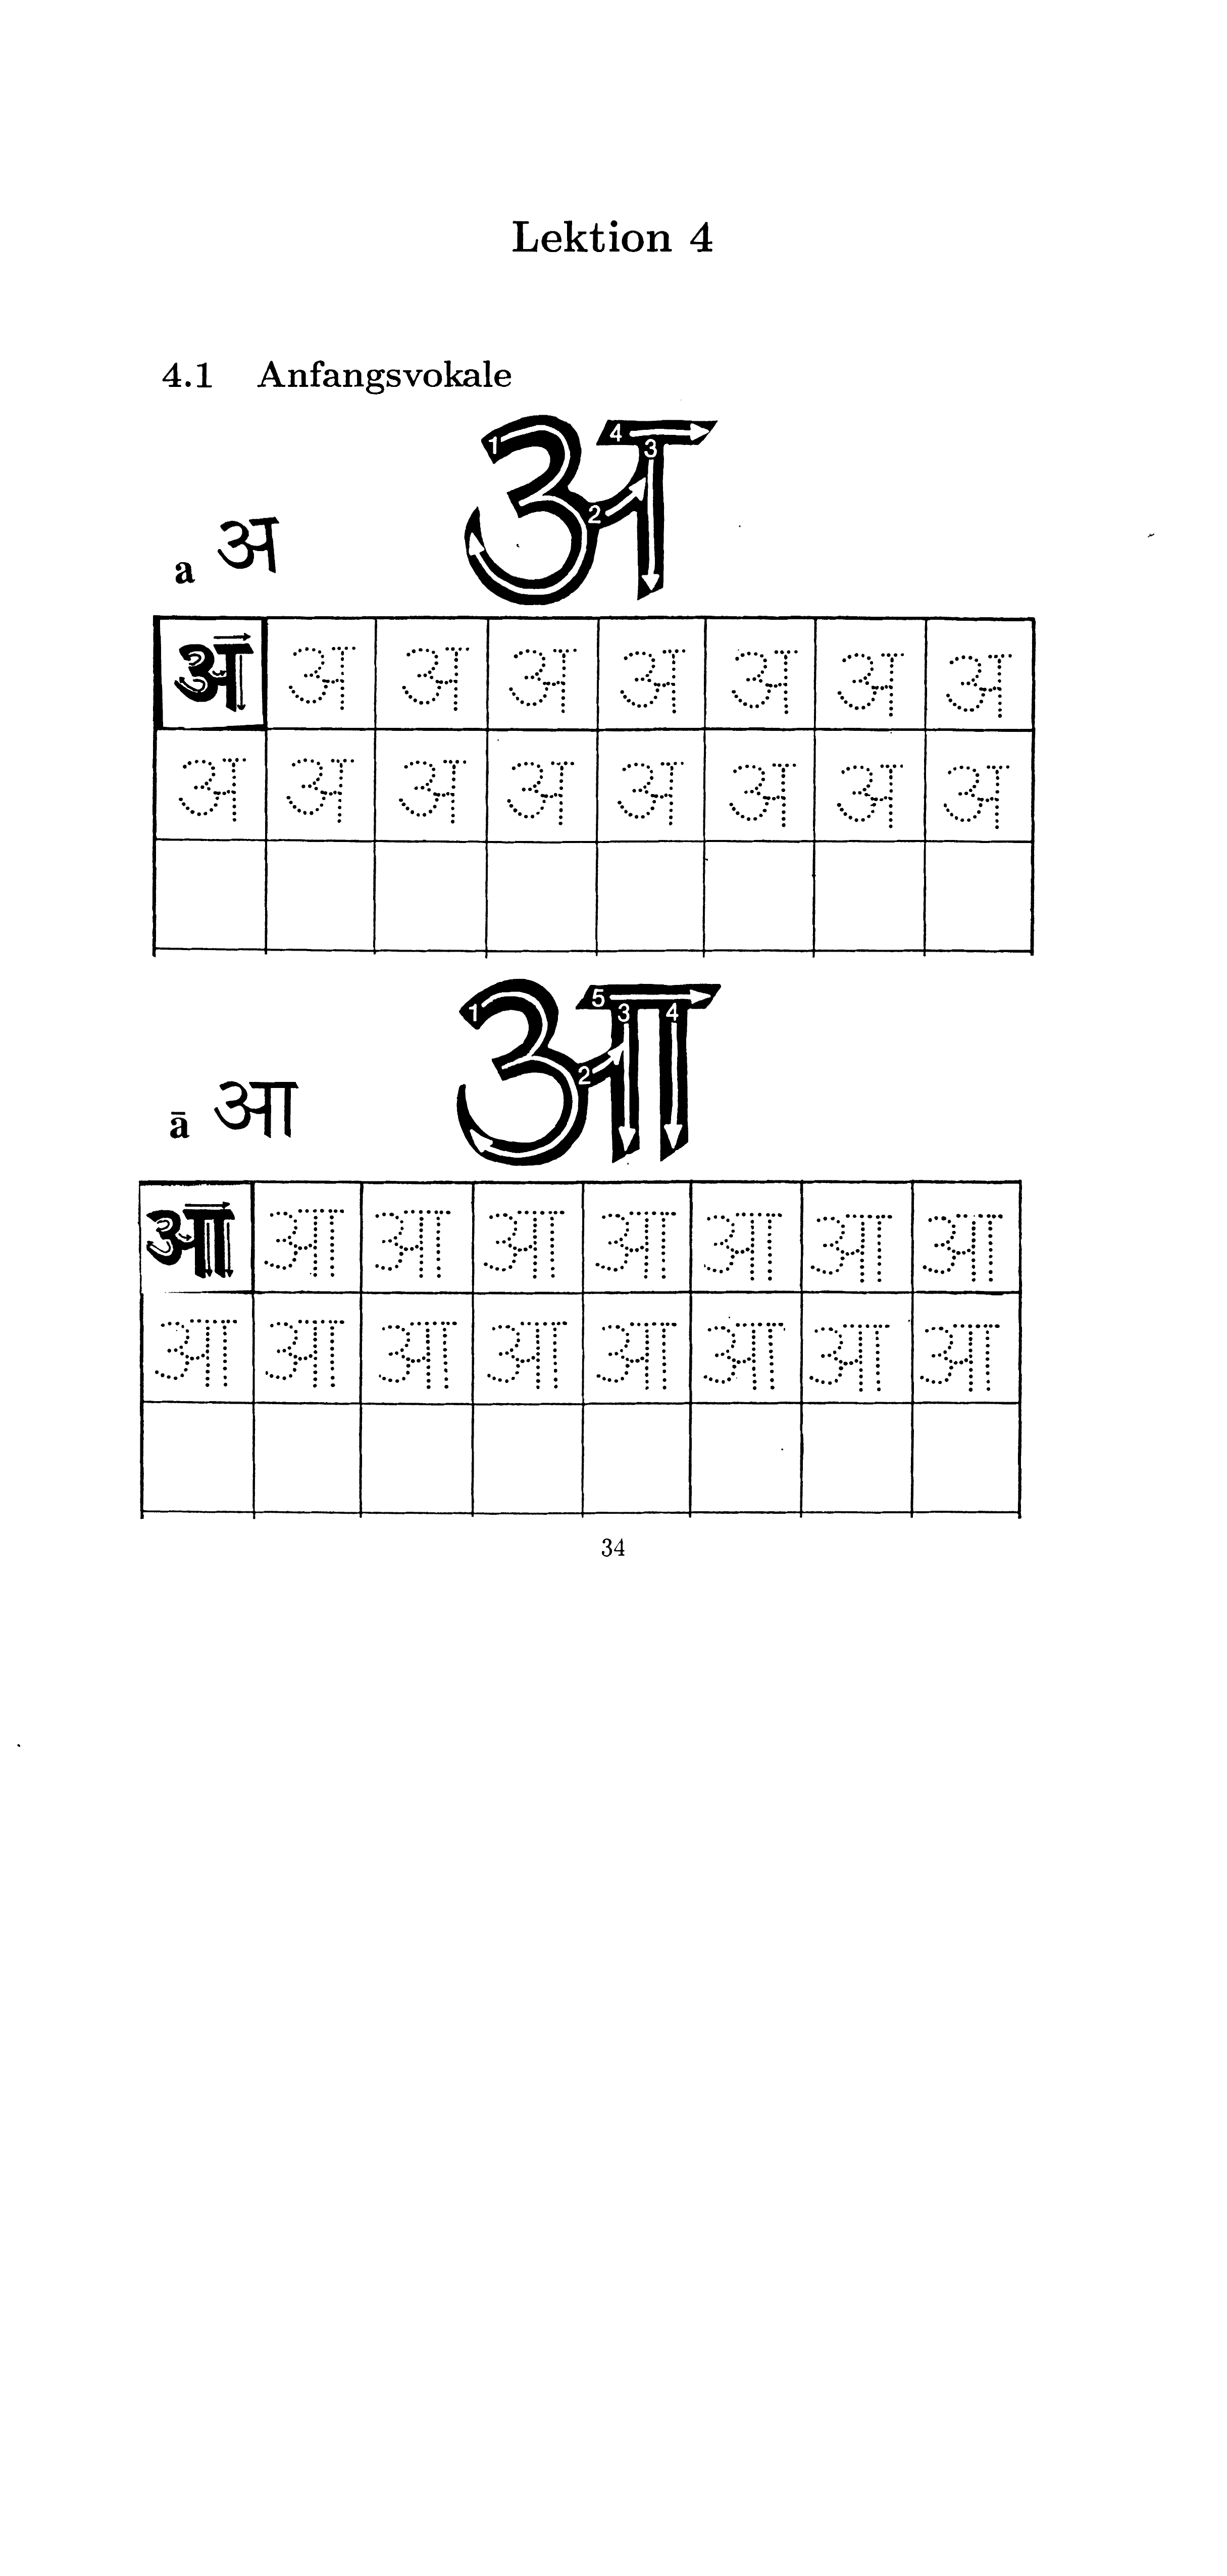 Lektion 4
4.1 Anfangsvokale
1 4 3 2
a अ
अ अ अ अ अ अ अ अ
अ अ अ अ अ अ अ अ
1 5 3 4 2
ā आ
आ आ आ आ आ आ आ आ
आ आ आ आ आ आ आ आ
34